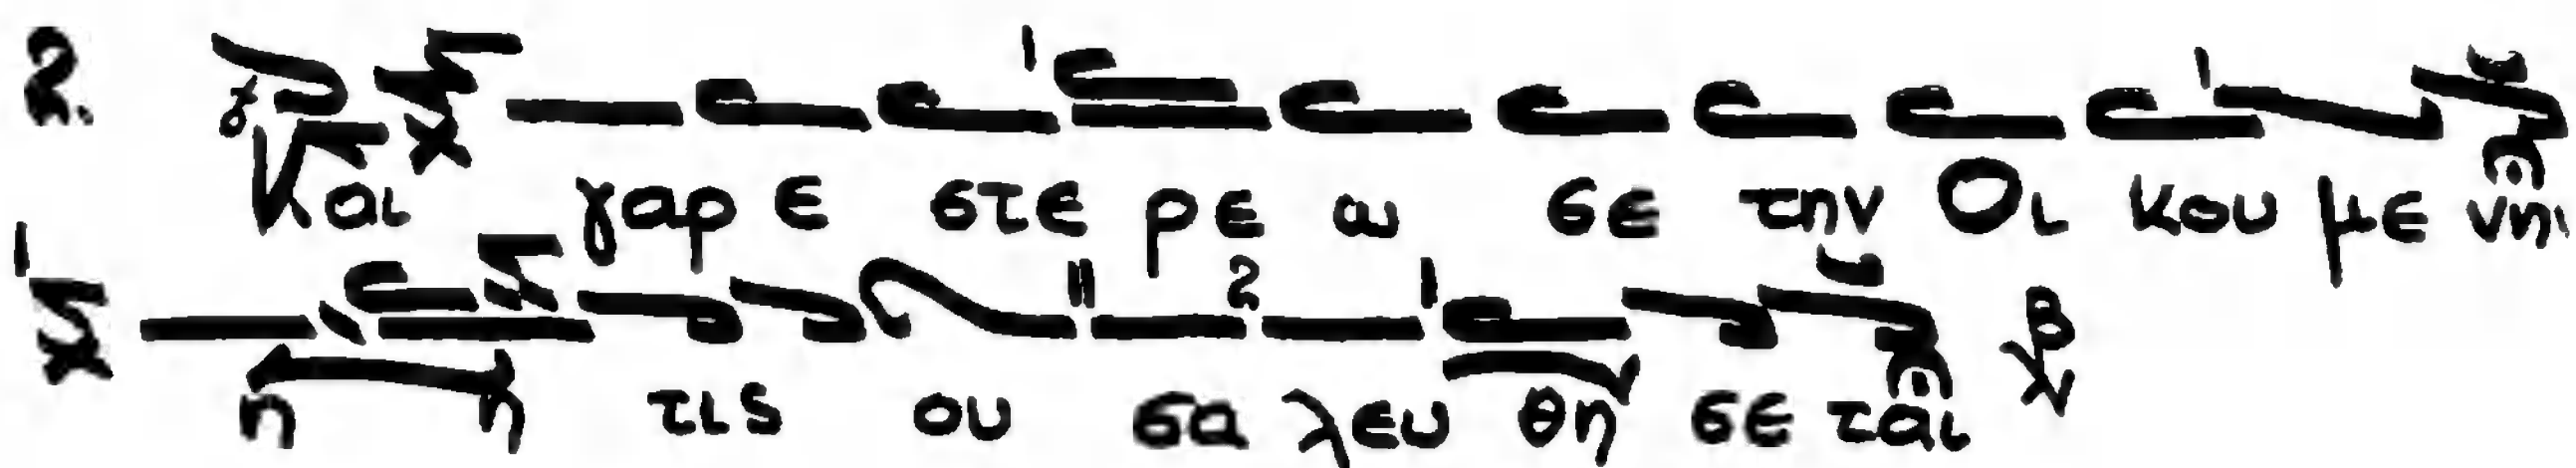 2. Και γαρ ε στε ρε ω σε την Οι κου με νη
η η τις ου σα λευ θη σε ται